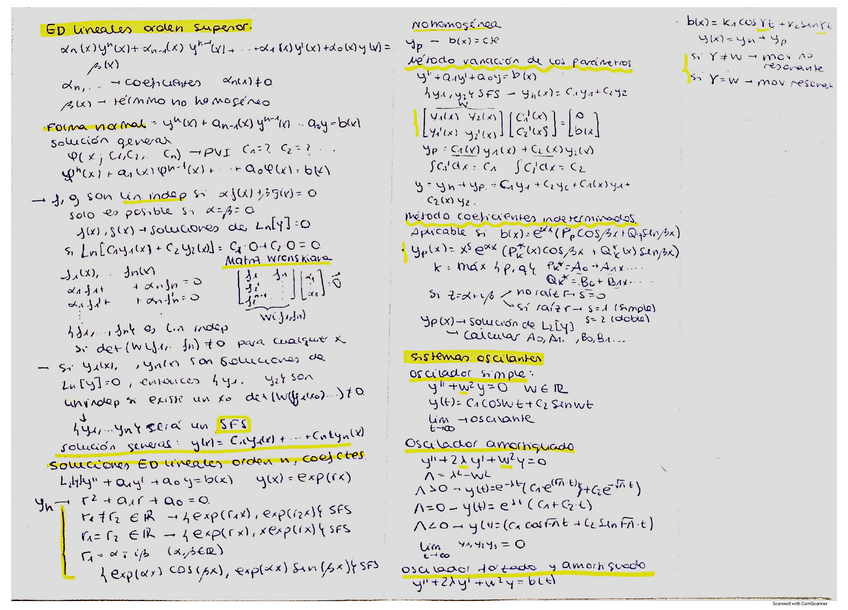 ED lineales orden superior.
αn(x)yⁿ(x) + αn-1(x) yⁿ⁻¹(x) + ... + α1(x)y'(x) + α0(x)y(x) =
β(x)
αn, ... → coeficientes αn(x)≠0
β(x) → término no homogéneo
Forma normal = yⁿ(x) + an-1(x) yⁿ⁻¹(x) ... a0y = b(x)
solución general
φ(x; C1, C2, ... Cn) → PVI C1=? C2=? ...
φⁿ(x) + a1(x)φⁿ⁻¹(x) + ... + a0φ(x) = b(x)
→ f, g son lin indep si αf(x) + βg(x) = 0
solo es posible si α=β=0
f(x), g(x) → soluciones de Ln[y]=0
si Ln[C1y1(x) + C2y2(x)] = C1·0 + C2·0 = 0
Matriz wronskiana
f1(x), ... fn(x)
α1f1 + αnfn = 0
α1f1' + αnfn' = 0
W(f1, fn)
{f1, ..., fn} es lin indep
si det(W(f1, ... fn)) ≠ 0 para cualquier x
→ si y1(x), ..., yn(x) son soluciones de
Ln[y]=0, entonces {y1, ... y2} son
lin indep si existe un x0 det(W(y1(x0)...) ≠ 0
↓
{y1, ... yn} será un SFS
solución general: y(x) = C1y1(x) + ... + Cnyn(x)
soluciones ED lineales orden n, coef ctes.
y'' + a1y' + a0y = b(x) y(x) = exp(rx)
yh → r² + a1r + a0 = 0
r1 ≠ r2 ∈ ℝ → {exp(r1x), exp(r2x)} SFS
r1 = r2 ∈ ℝ → {exp(rx), xexp(rx)} SFS
r1 = α ± iβ (α, β ∈ ℝ)
{exp(αx) cos(βx), exp(αx) sin(βx)} SFS
No homogénea
yp → b(x) = cte
Método variación de los parámetros
y'' + a1y' + a0y = b(x)
{y1, y2} SFS → yh(x) = C1y1 + C2y2
W
[y1(x) y2(x)] [C1'(x)] = [0]
[y1'(x) y2'(x)] [C2'(x)] [b(x)]
yp = C1(x) y1(x) + C2(x) y2(x)
∫C1'dx = C1 ∫C2'dx = C2
y = yh + yp = C1y1 + C2y2 + C1(x)y1 +
C2(x)y2.
Método coeficientes indeterminados
Aplicable si b(x) = e^αx (Pp cosβx + Qq senβx)
yp(x) = x^s e^αx (Pk*(x) cosβx + Qk*(x) senβx)
k = máx {p, q} Pk* = A0 + A1x ...
Qk* = B0 + B1x ...
si z = α + iβ → no raíz → s=0
si raíz r → s=1 (simple)
s=2 (doble)
yp(x) → solución de L2[y]
→ calcular A0, A1, , B0, B1 ...
Sistemas oscilantes
Oscilador simple:
y'' + w²y = 0 w ∈ ℝ
y(t) = C1 cos wt + C2 sin wt
lim → oscilante
t→∞
Oscilador amortiguado
y'' + 2λy' + w²y = 0
Λ = λ² - w²
Λ>0 → y(t) = e^-λt (C1e^(√Λ t) + C2e^-√Λ t)
Λ=0 → y(t) = e^λt (C1 + C2·t)
Λ<0 → y(t) = (C1 cos√-Λ t + C2 sin√-Λ·t)
lim y1, y2, y3 = 0
t→∞
Oscilador forzado y amortiguado
y'' + 2λy' + w²y = b(t)
b(x) = k1 cos γt + k2 sen γt
y(x) = yh + yp
si γ ≠ w → mov no
resonante
si γ = w → mov resonan
Scanned with CamScanner